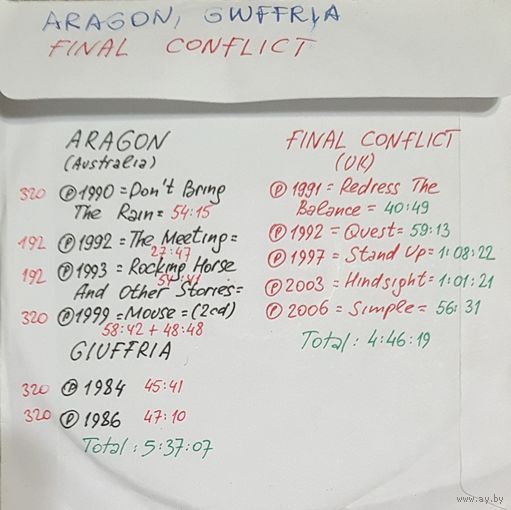 ARAGON, GWFFRIA
FINAL CONFLICT
ARAGON
(Australia)
320 Ⓟ1990 = Don't Bring
The Rain = 54:15
192 Ⓟ1992 = The Meeting =
27:47
192 Ⓟ1993 = Rocking Horse
And Other Stories =
320 Ⓟ1999 = Mouse = (2cd)
58:42 + 48:48
GIUFFRIA
320 Ⓟ 1984 45:41
320 Ⓟ 1986 47:10
Total: 5:37:07
FINAL CONFLICT
(UK)
Ⓟ 1991 = Redress The
Balance = 40:49
Ⓟ 1992 = Quest = 59:13
Ⓟ 1997 = Stand Up = 1:08:22
Ⓟ 2003 = Hindsight = 1:01:21
Ⓟ 2006 = Simple = 56:31
Total: 4:46:19
www.ay.by